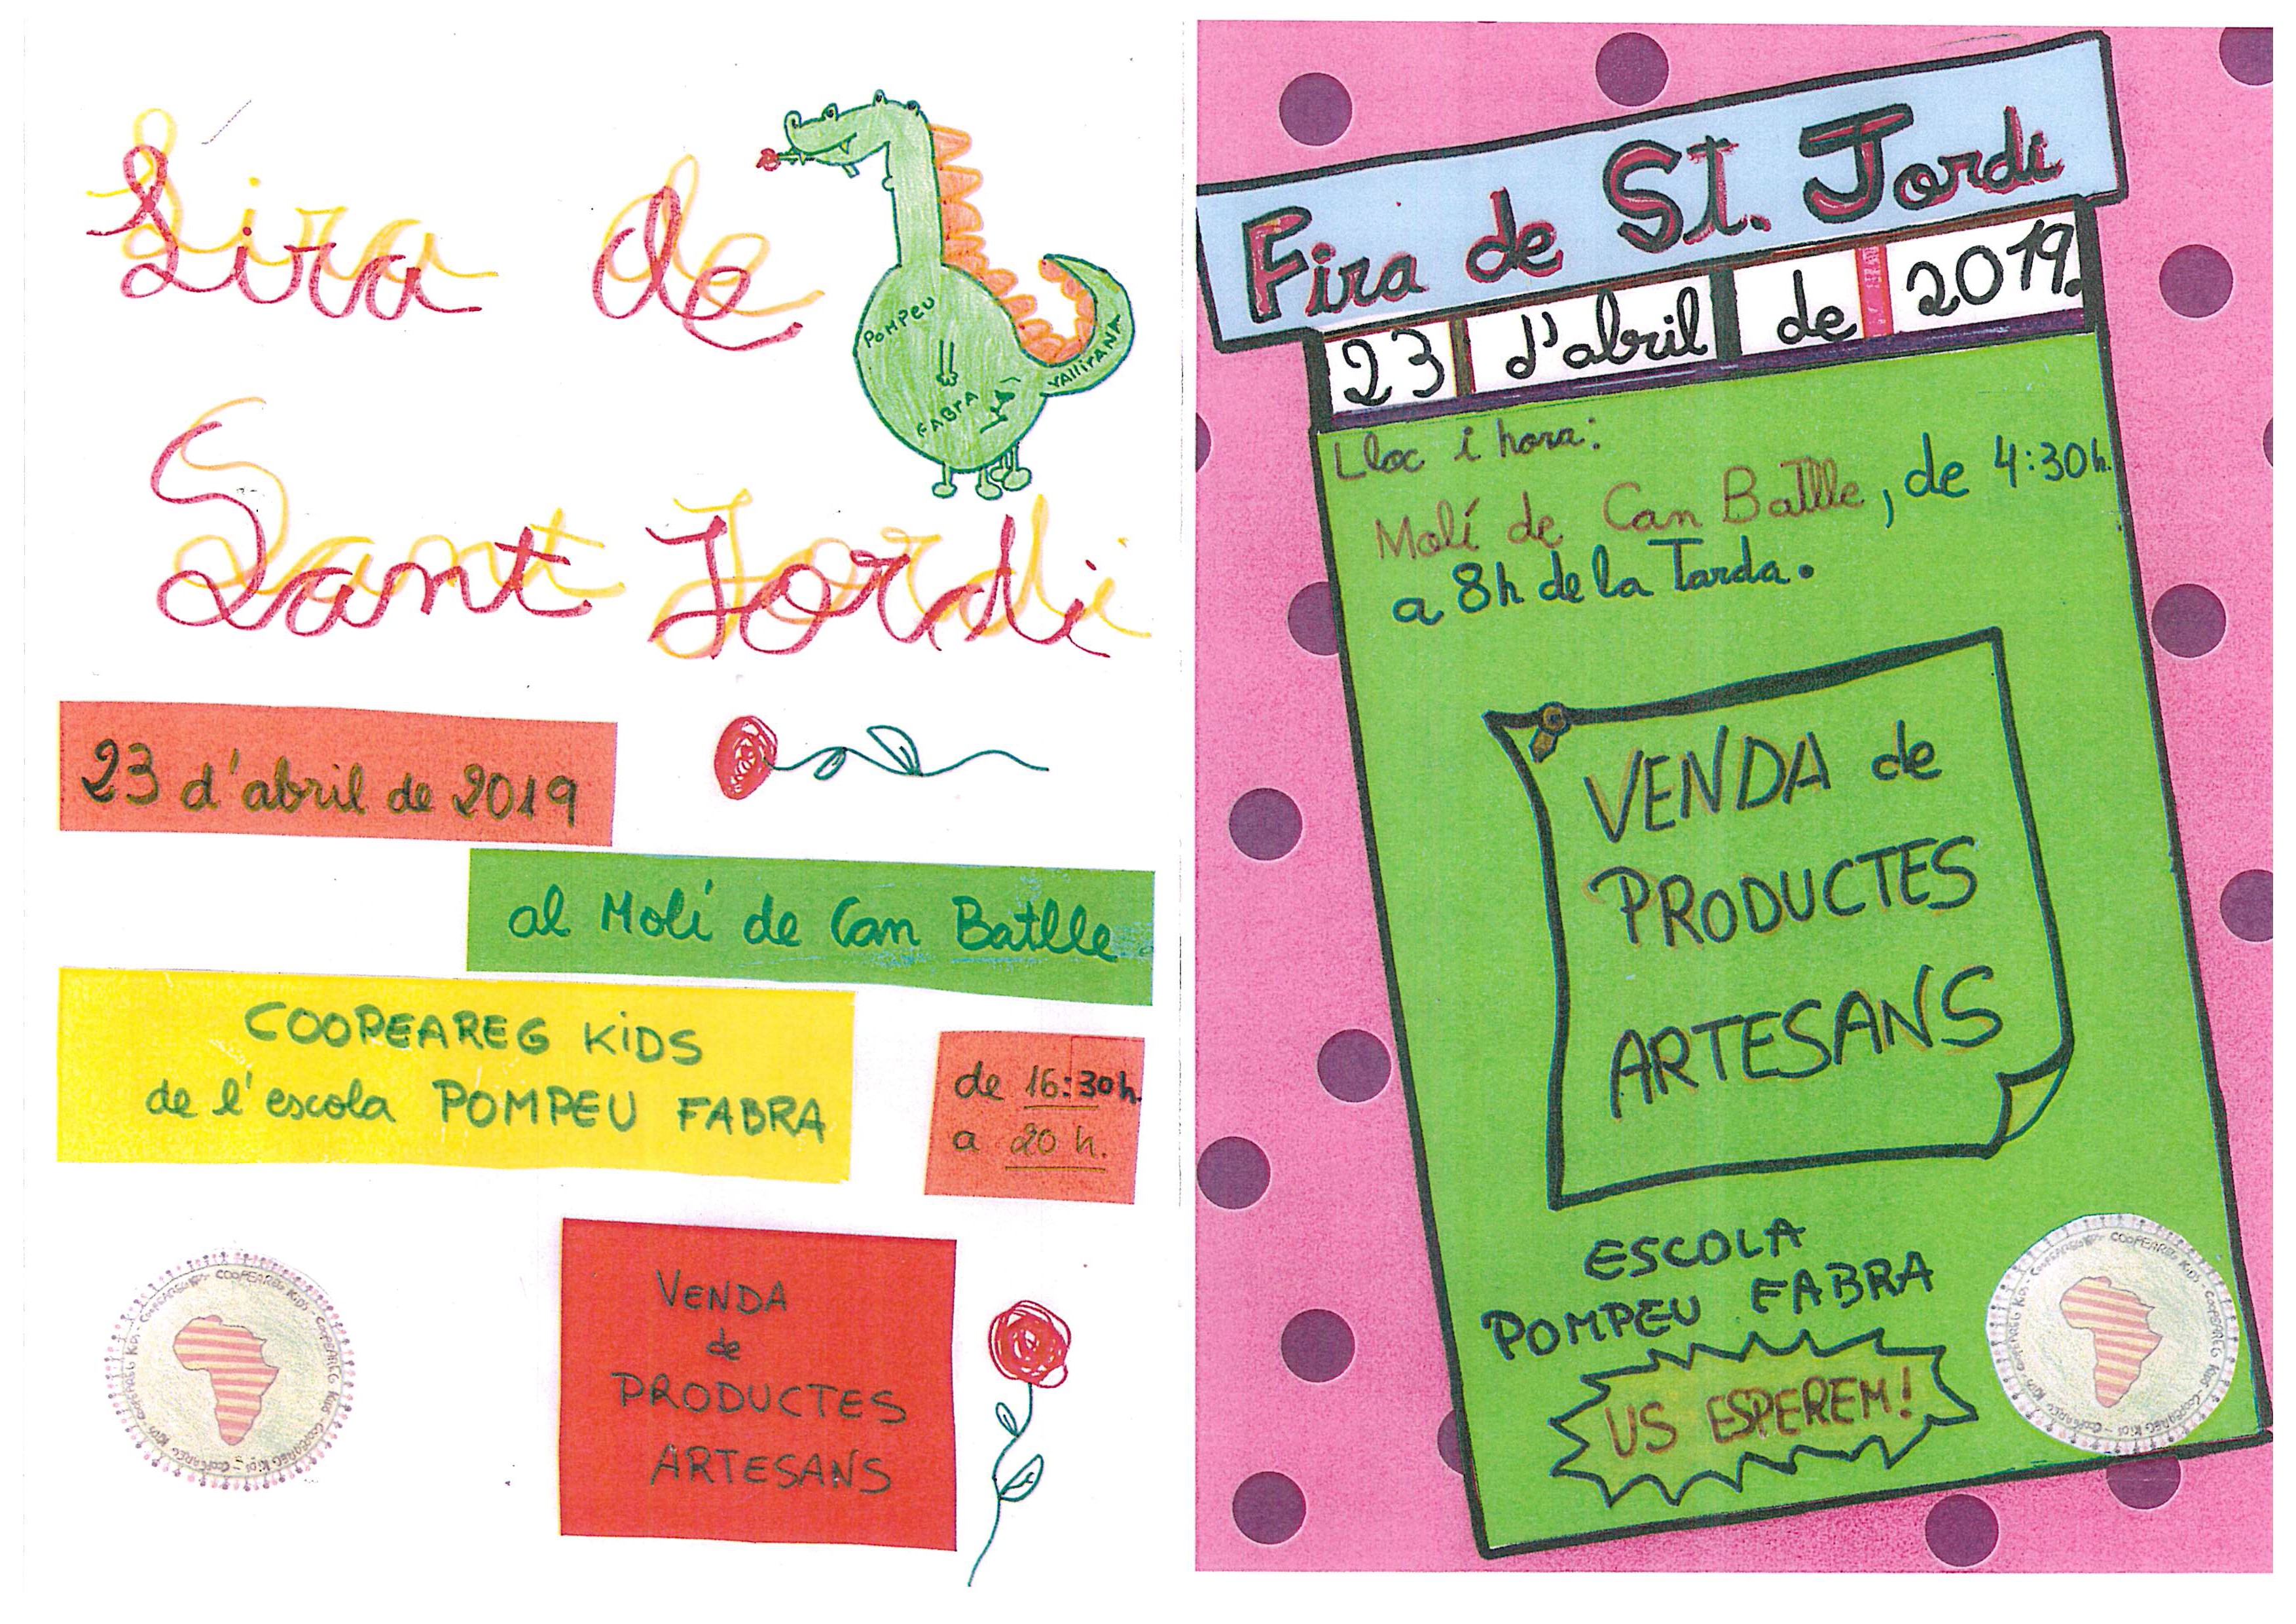 Fira de
Sant Jordi
POMPEU
FABRA
VALLIRANA
23 d'abril de 2019
al Molí de Can Batlle
COOPEAREG KiDS
de l'escola POMPEU FABRA
de 16:30h.
a 20 h.
VENDA
de
PRODUCTES
ARTESANS
COOPEAREG KiDS
Fira de St. Jordi
23 d'abril de 2019.
Lloc i hora:
Molí de Can Batlle, de 4:30h.
a 8h de la Tarda.
VENDA de
PRODUCTES
ARTESANS
ESCOLA
POMPEU FABRA
US ESPEREM!
COOPEAREG KiDS